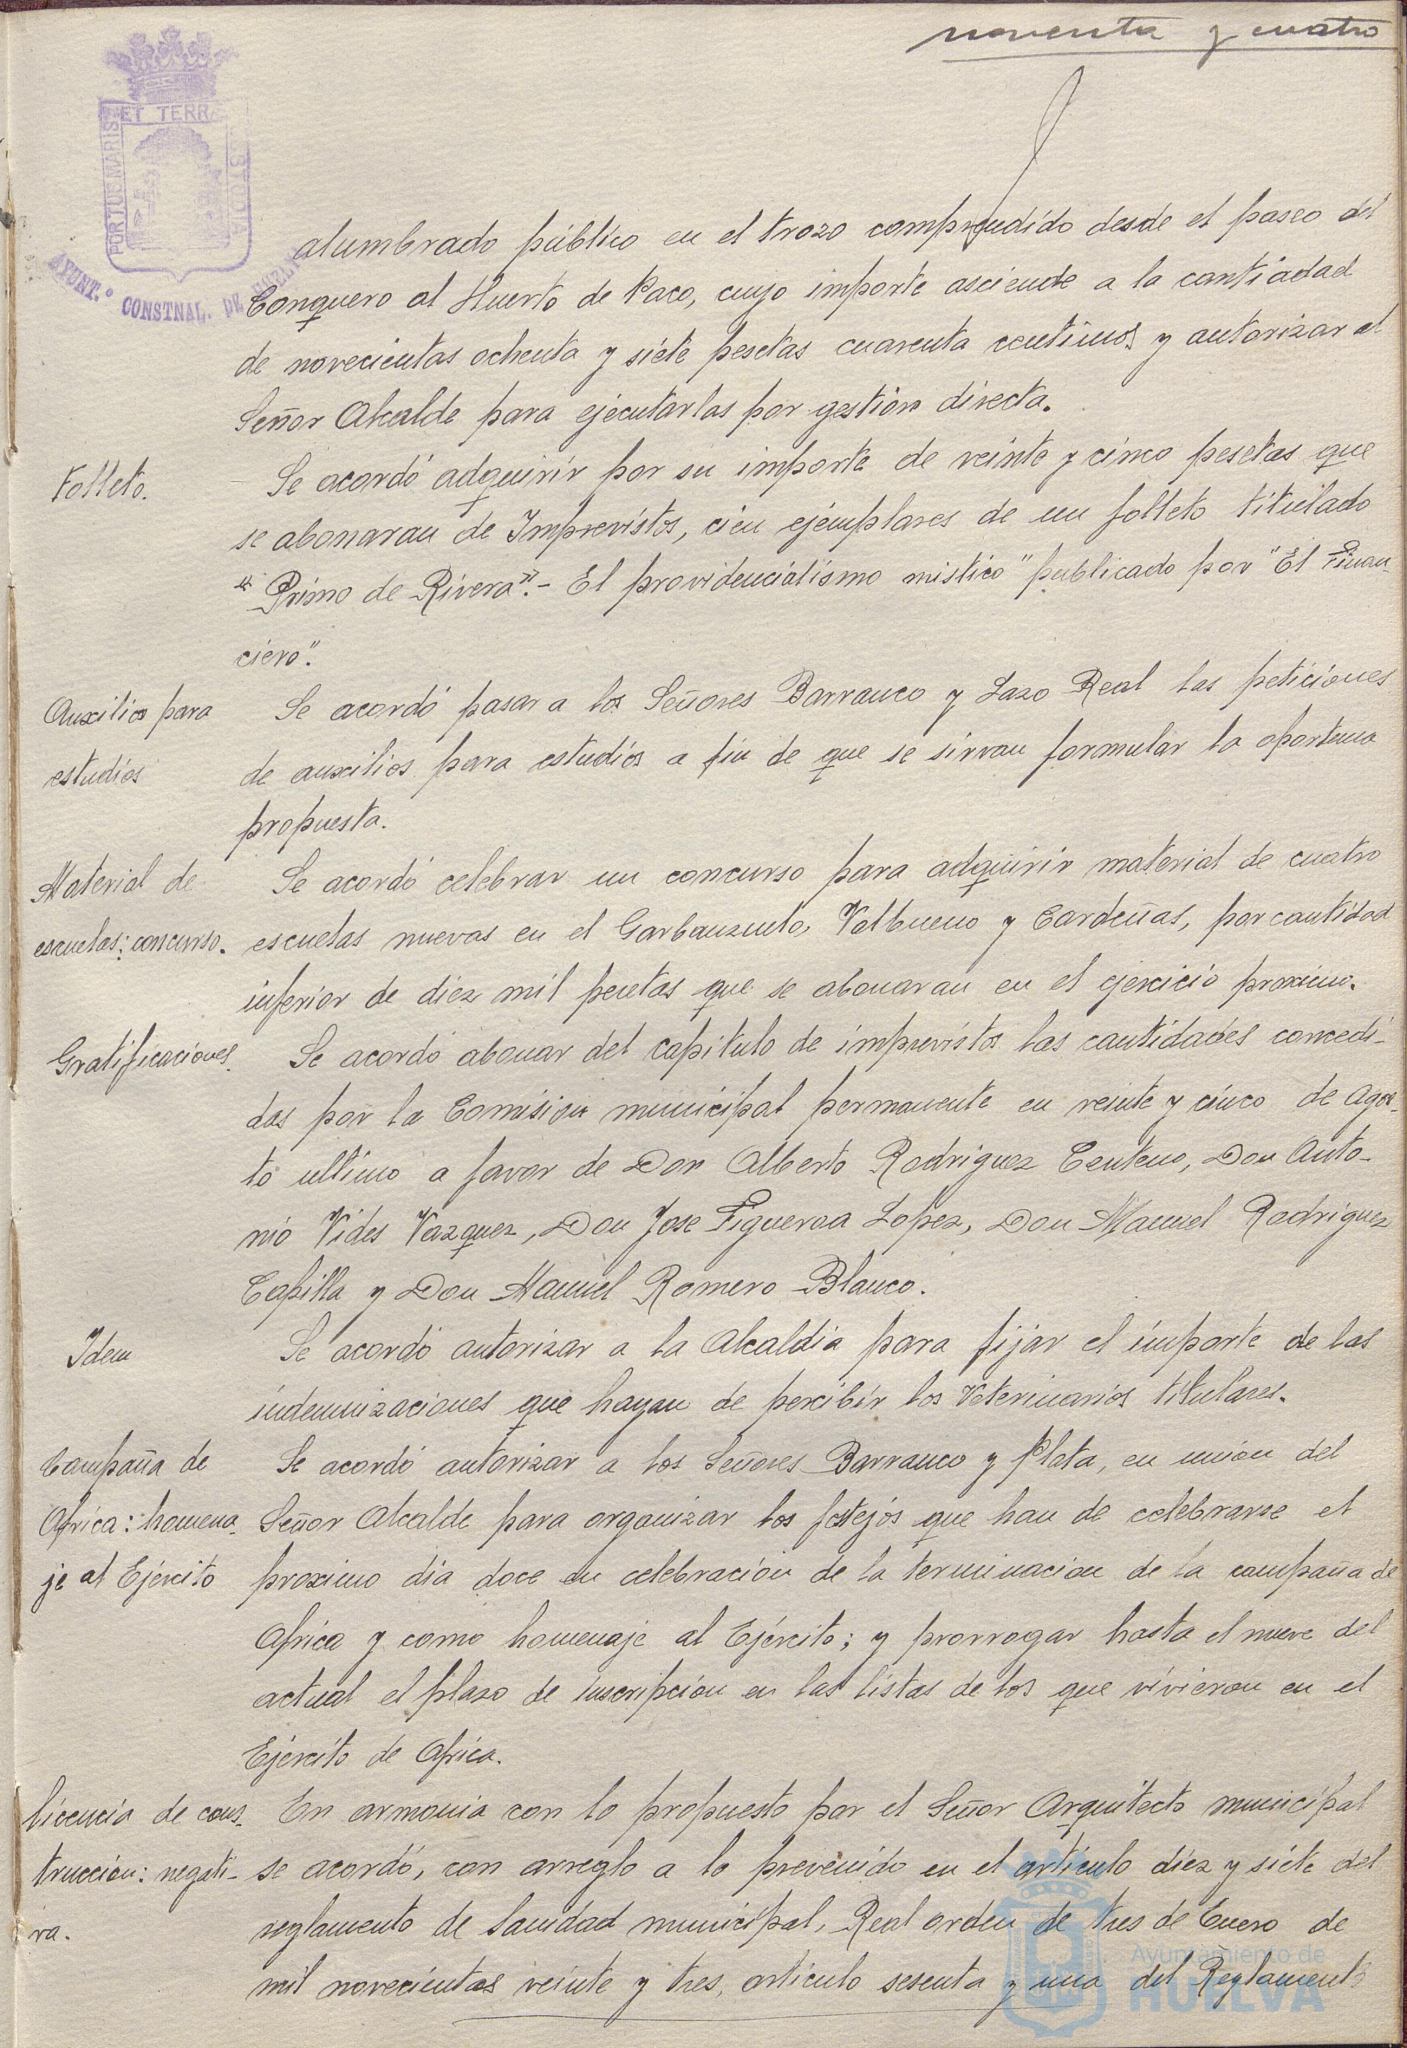 noventa y cuatro
PORTUS MARIS ET TERRÆ CUSTODIA
AYUNT.º CONSTNAL. DE HUELVA
alumbrado público en el trozo comprendido desde el paseo del
Conquero al Huerto de Paco, cuyo importe asciende a la cantidad
de novecientas ochenta y siete pesetas cuarenta centimos y autorizar al
Señor Alcalde para ejecutarlas por gestión directa.
Folleto.
Se acordó adquirir por su importe de veinte y cinco pesetas que
se abonaran de Imprevistos, cien ejemplares de un folleto titulado
"Primo de Rivera".- El providencialismo mistico" publicado por "El Finan-
ciero".
Auxilios para
Se acordó pasar a los Señores Barranco y Lazo Real las peticiones
estudios
de auxilios para estudios a fin de que se sirvan formular la oportuna
propuesta.
Material de
Se acordó celebrar un concurso para adquirir material de cuatro
escuelas: concurso.
escuelas nuevas en el Garbanzuelo, Valbueno y Cardeñas, por cantidad
inferior de diez mil pesetas que se abonaran en el ejercicio proximo.
Gratificaciones.
Se acordó abonar del capitulo de imprevistos las cantidades concedi-
das por la Comision municipal permanente en veinte y cinco de Agos-
to ultimo a favor de Don Alberto Rodriguez Centeno, Don Anto-
nio Vides Vazquez, Don Jose Figueroa Lopez, Don Manuel Rodriguez
Capilla y Don Manuel Romero Blanco.
Idem
Se acordó autorizar a la Alcaldia para fijar el importe de las
indemnizaciones que hayan de percibir los Veterinarios titulares.
Campaña de
Se acordó autorizar a los Señores Barranco y Plata, en union del
Africa: homena-
Señor Alcalde para organizar los festejos que han de celebrarse el
je al Ejército
proximo dia doce en celebración de la terminacion de la campaña de
Africa y como homenaje al Ejército; y prorrogar hasta el nueve del
actual el plazo de inscripcion en las listas de los que vivieron en el
Ejército de Africa.
Licencia de cons-
En armonia con lo propuesto por el Señor Arquitecto municipal
truccion: negati-
se acordó, con arreglo a lo prevenido en el articulo diez y siete del
va.
reglamento de Sanidad municipal, Real orden de tres de Enero de
mil novecientos veinte y tres, articulo sesenta y uno del Reglamento
Ayuntamiento de
HUELVA